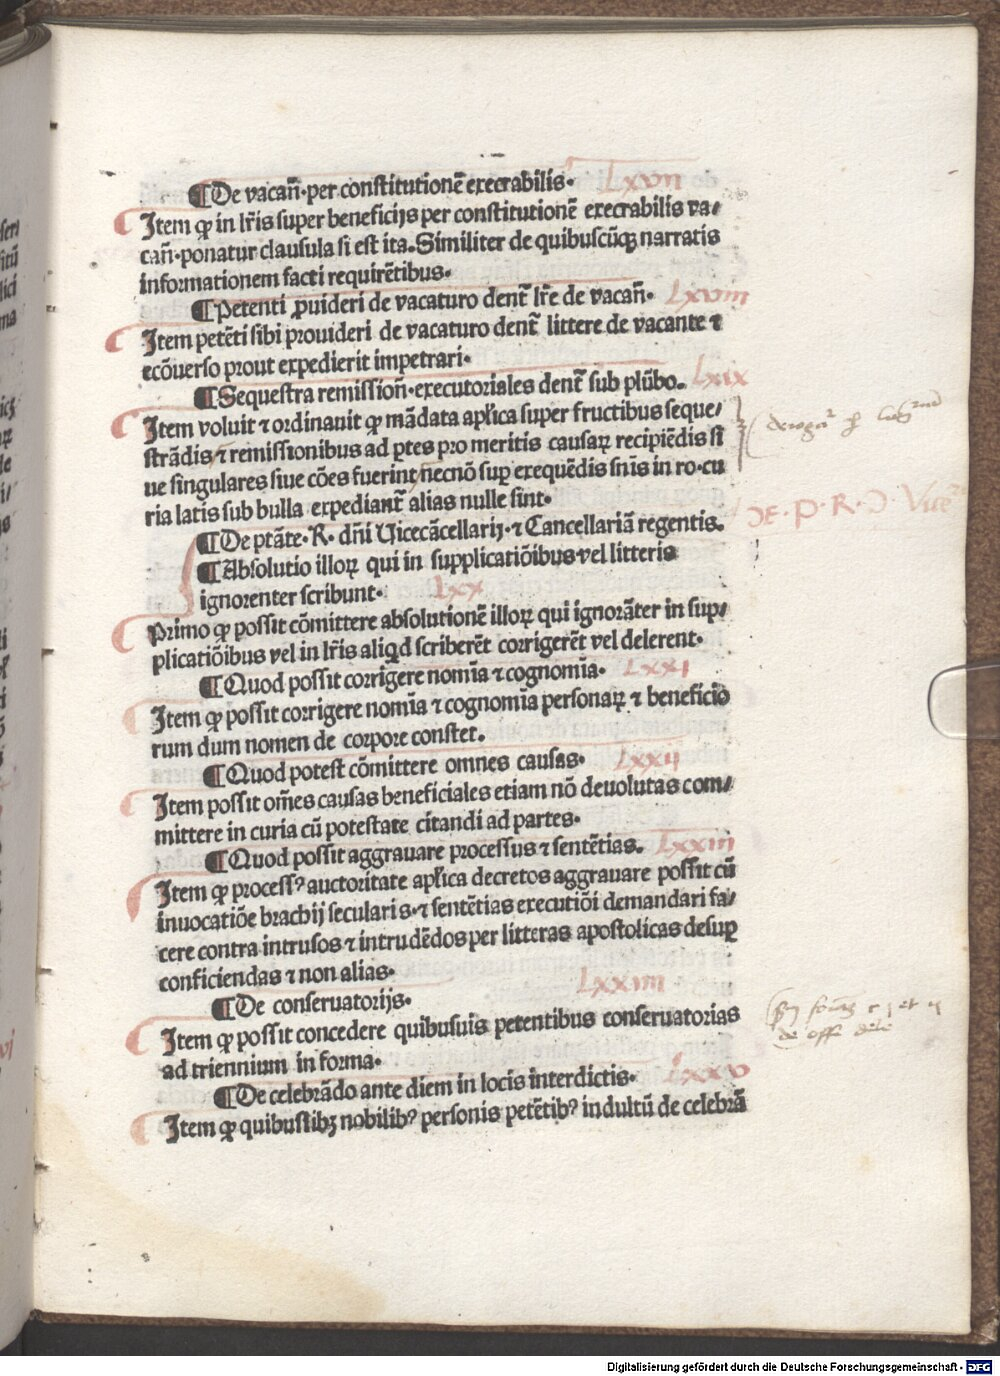 ¶De vacañ·per constitutionē execrabilis· Lxvii
Item ꝙ in lr̄is super beneficijs per constitutionē execrabilis va⸗
cañ·ponatur clausula si est ita.Similiter de quibuscūqꝫ narratis
informationem facti requirētibus·
¶Petenti ꝓuideri de vacaturo dent̄ lr̄e de vacañ· Lxviii
Item petēti sibi prouideri de vacaturo dent̄ littere de vacante ⁊
ecōuerso prout expedierit impetrari·
¶Sequestra remissioñ·executoriales dent̄ sub plūbo. Lxix
Item voluit ⁊ ordinauit ꝙ mādata apl̄ica super fructibus seque⸗
strādis ⁊ remissionibus ad ꝑtes pro meritis causaꝝ recipiēdis si
ue singulares siue cōes fuerint necnō suꝑ exequēdis sn̄is in ro·cu
ria latis sub bulla expediant̄ alias nulle sint·
DE·P·R·D·Vice
¶De ptāte·R·dn̄i Uicecācellarij·⁊ Cancellariā regentis.
¶Absolutio illoꝝ qui in supplicatiōibus vel litteris
ignorenter scribunt· Lxx
Primo ꝙ possit cōmittere absolutionē illoꝝ qui ignorāter in sup⸗
plicatiōibus vel in lr̄is aliqd̄ scriberēt corrigerēt vel delerent·
¶Quod possit corrigere nomīa ⁊ cognomīa· Lxxi
Item ꝙ possit corrigere nomīa ⁊ cognomīa personaꝝ ⁊ beneficio
rum dum nomen de corpore constet.
¶Quod potest cōmittere omnes causas· Lxxii
Item possit om̄es causas beneficiales etiam nō deuolutas com⸗
mittere in curia cū potestate citandi ad partes·
¶Quod possit aggrauare processus ⁊ sentētias. Lxxiii
Item ꝙ processꝰ auctoritate apl̄ica decretos aggrauare possit cū
inuocatiōe brachij seculari s·⁊ sentētias executiōi demandari fa⸗
cere contra intrusos ⁊ intrudēdos per litteras apostolicas desuꝑ
conficiendas ⁊ non alias·
¶De conseruatorijs· Lxxiiii
Item ꝙ possit concedere quibusuis petentibus conseruatorias
ad triennium in forma·
¶De celebrādo ante diem in locis interdictis· Lxxv
Item ꝙ quibuslibꝫ nobilibꝰ personis petētibꝰ indultū de celebrā
Digitalisierung gefördert durch die Deutsche Forschungsgemeinschaft · DFG